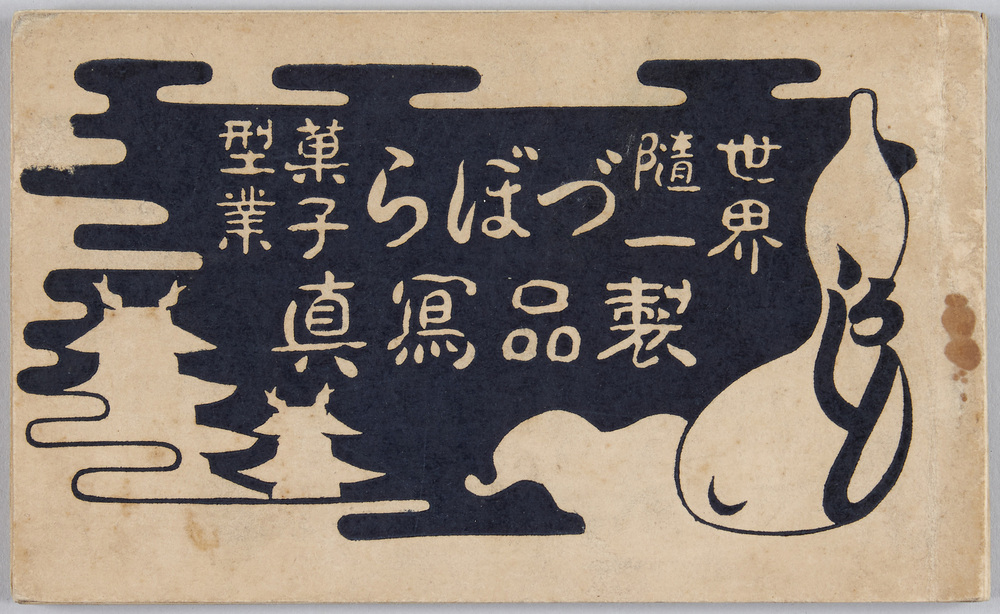 世界
隨一
づぼら
菓子
型業
製品寫真